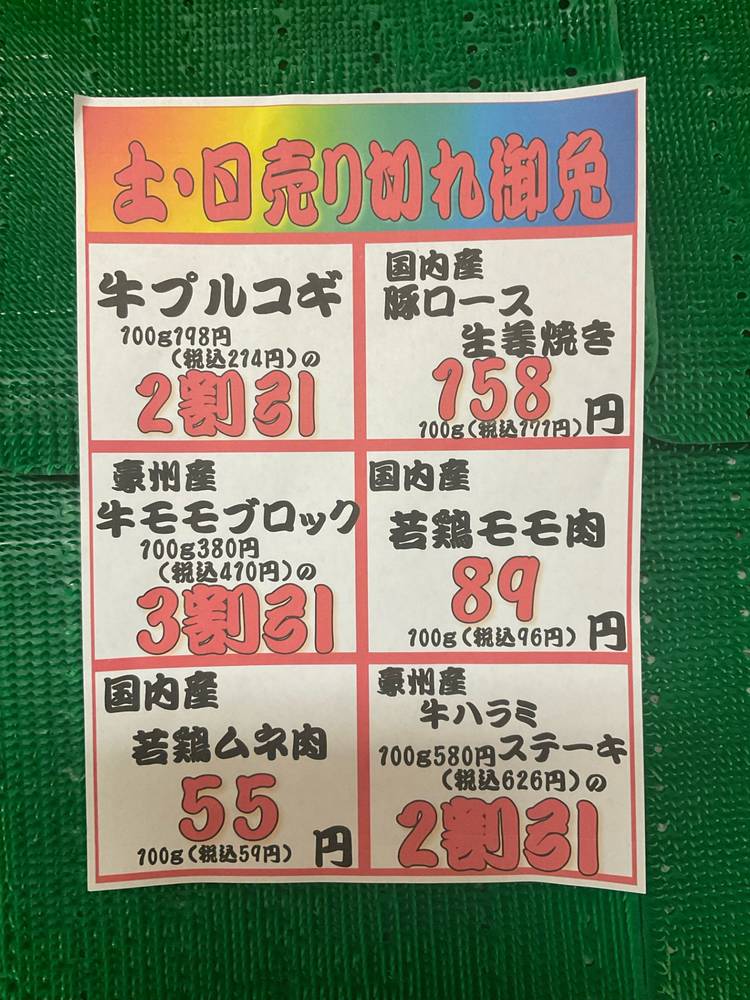 土・日売り切れ御免
牛プルコギ
100g198円
(税込214円)の
2割引
国内産
豚ロース
生姜焼き
158円
100g(税込171円)
豪州産
牛モモブロック
100g380円
(税込410円)の
3割引
国内産
若鶏モモ肉
89円
100g(税込96円)
国内産
若鶏ムネ肉
55円
100g(税込59円)
豪州産
牛ハラミ
ステーキ
100g580円
(税込626円)の
2割引